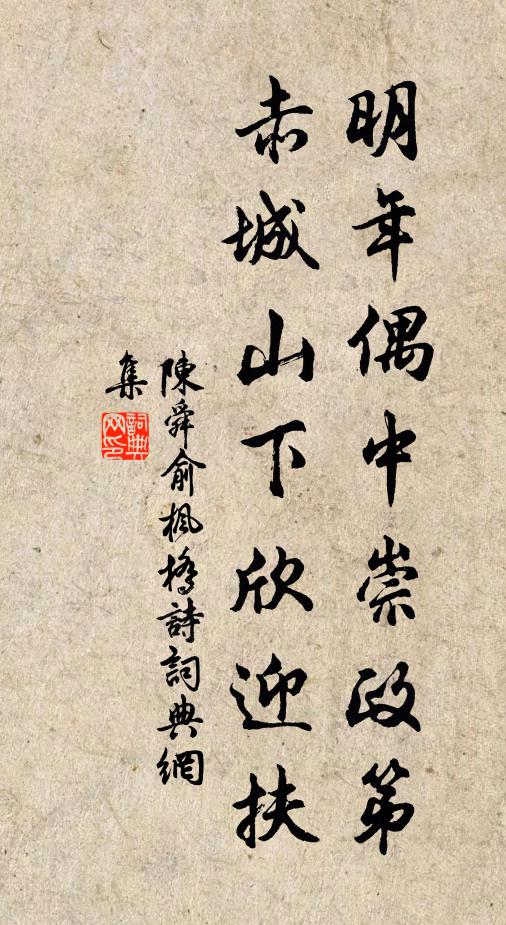 明年偶中崇政第
赤城山下欣迎扶
陳舜俞楓橋詩詞典網
集
詞典
网印